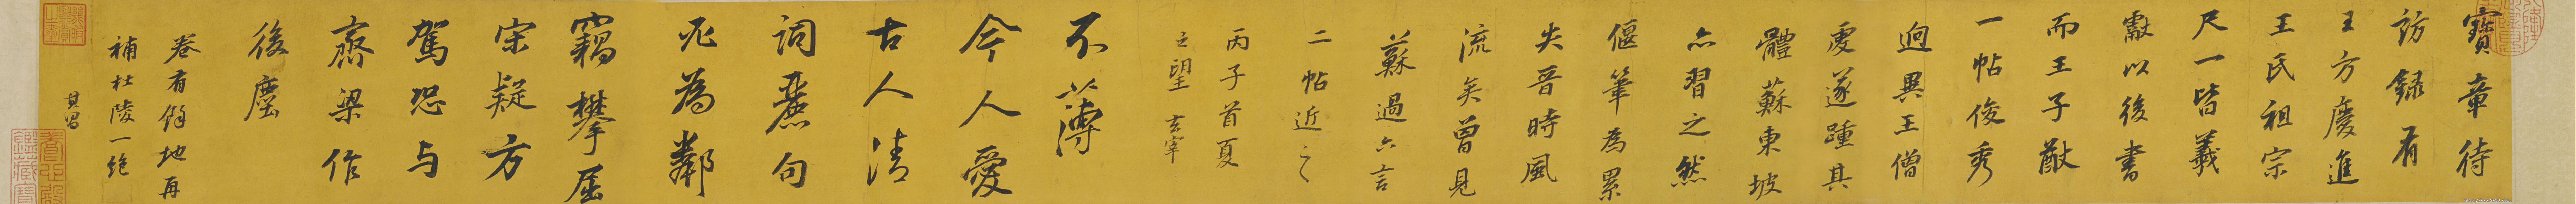 寶章待
訪錄有
王方慶進
王氏祖宗
尺一皆羲
獻以後書
而王子猷
一帖俊秀
迥異王僧
虔遂踵其
體蘇東坡
亦習之然
偃筆為累
失晉時風
流矣曾見
蘇過六言
二帖近之
丙子首夏
之望 玄宰
不薄
今人愛
古人清
詞麗句
必為鄰
竊攀屈
宋疑方
駕恐与
齊梁作
後塵
卷有餘地再
補杜陵一絕
其昌